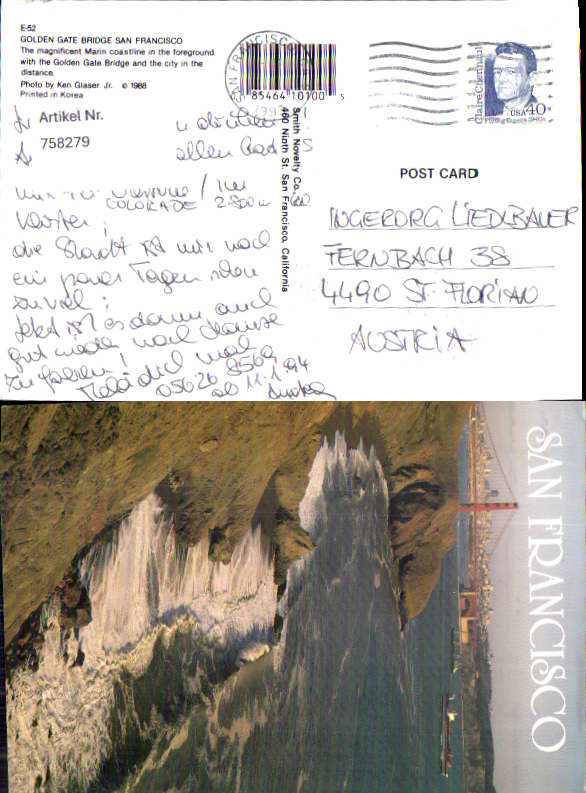 E-52
GOLDEN GATE BRIDGE SAN FRANCISCO
The magnificent Marin coastline in the foreground
with the Golden Gate Bridge and the city in the
distance.
Photo by Ken Glaser Jr. © 1988
Printed in Korea
Artikel Nr.
758279
COLORADE 2800
die Stadt ist mir nach
ein paar Tagen schon
zuviel;
Jetzt ist es dann auch
gut wieder nach Hause
zu
Meld dich mal
05626 8569
ab 11.1.94
SAN FRANCISCO
85464 10100 5
Smith Novelty Co.
460 Ninth St. San Francisco, California
Claire Chennault
Flying Tigers, 1940s
USA 40
POST CARD
INGEBORG LIEDLBAUER
FERNBACH 38
4490 ST. FLORIAN
AUSTRIA
SAN FRANCISCO